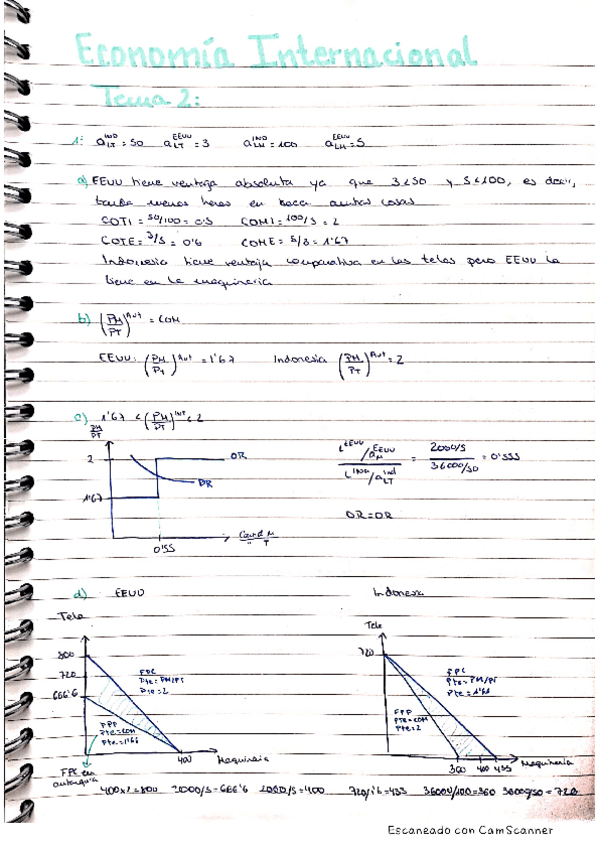 Economía Internacional
Tema 2:
1: a_LT^IND = 50 a_LT^EEUU = 3 a_LM^IND = 100 a_LM^EEUU = 5
a) EEUU tiene ventaja absoluta ya que 3<50 y 5<100, es decir,
tarda menos horas en hacer ambas cosas
COTI = 50/100 = 0'5 COMI = 100/5 = 2
COTE = 3/5 = 0'6 COME = 5/3 = 1'67
Indonesia tiene ventaja comparativa en las telas pero EEUU la
tiene en la maquinaria
b) (PM/PT)^Aut = COM
EEUU: (PM/PT)^Aut = 1'67 Indonesia (PM/PT)^Aut = 2
c) 1'67 < (PM/PT)^INT < 2
PM/PT
2
OR
DR
1'67
0'55
Cant d M
" T
L^EEUU/a_M^EEUU / L^IND/a_LT^ind = 2000/5 / 36000/50 = 0'555
OR=DR
d) EEUU Indonesia
Tela
800
720
666'6
FPC
Pte = PM/PT
Pte = 2
FPP
Pte = COM
Pte = 1'66
400
Maquinaria
FPC en
autarquía
Tela
720
FPC
Pte = PM/PT
FPP
Pte = COM
Pte = 2
360 400 433
Maquinaria
400x2 = 800 2000/3 = 666'6 2000/5 = 400 36000/100 = 360 36000/50 = 720
Escaneado con CamScanner